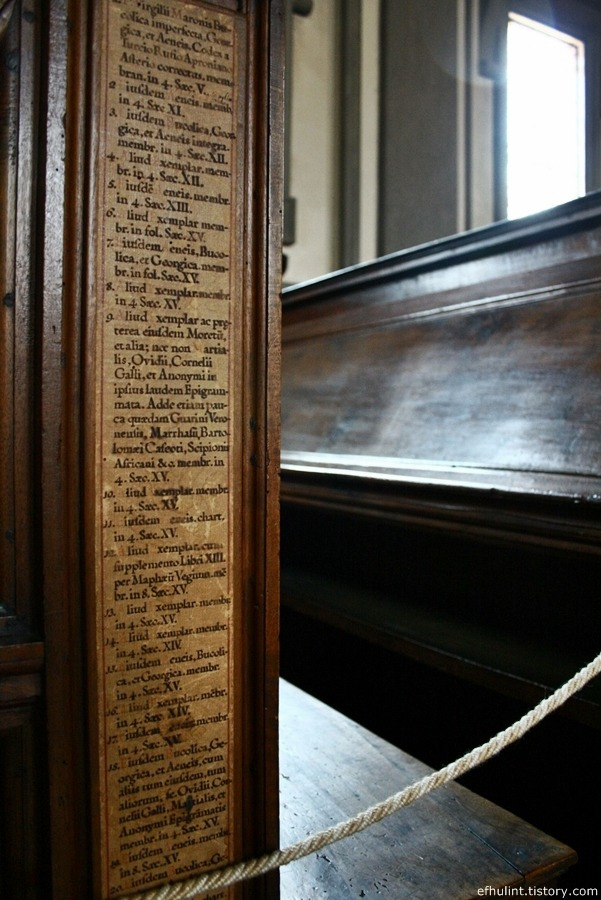 Virgilii Maronis Bu-
colica imperfecta, Geor-
gica, et Aeneis. Codex a
Turcio Rufio Aproniano
Asterio correctus, mem-
bran. in 4. Sæc. V.
2 iusdem eneis. memb.
in 4. Sæc XI.
3. iusdem ucolica, Geor
gica, et Aeneis integra.
membr. in 4. Sæc. XII.
4. liud xemplar. mem-
br. in 4. Sæc. XII.
5. iusdē eneis. membr.
in 4. Sæc. XIII.
6. liud xemplar mem-
br. in fol. Sæc. XV.
7. iusdem eneis, Buco-
lica, et Georgica. mem-
br. in fol. Sæc. XV.
8. liud xemplar. membr.
in 4 Sæc. XV.
9. liud xemplar ac prę-
terea eiusdem Moretū,
et alia; nec non artia-
lis, Ovidii, Cornelii
Galli, et Anonymi in
ipsius laudem Epigram-
mata. Adde etiam pau-
ca quædam Guarini Vero-
nensis, Marrhasii, Barto-
lomæi Cafeoti, Scipionis
Africani &c. membr. in
4. Sæc. XV.
10. liud xemplar. membr.
in 4. Sæc. XV.
11. iusdem eneis. chart.
in 4. Sæc. XV.
12. liud xemplar. cum
supplemento Libri XIII.
per Maphæū Vegium. mē
br. in 8. Sæc. XV.
13. liud xemplar. membr.
in 4. Sæc. XV.
14. liud xemplar. membr.
in 4. Sæc. XIV.
15. iusdem eneis, Bucoli-
ca, et Georgica. membr.
in 4. Sæc. XV.
16. liud xemplar. mēbr.
in 4. Sæc. XIV.
17. iusdem eneis. membr.
in 4. Sæc. XV.
18. iusdem ucolica, Ge-
orgica, et Aeneis, cum
aliis tum eiusdem, tum
aliorum, sc. Ovidii, Cor-
nelii Galli, Martialis, et
Anonymi Epigrāmatis
membr. in 4. Sæc. XV.
19. iusdem eneis. membr.
in 8. Sæc. XV.
20. iusdem ucolica, Ge-
efhulint.tistory.com